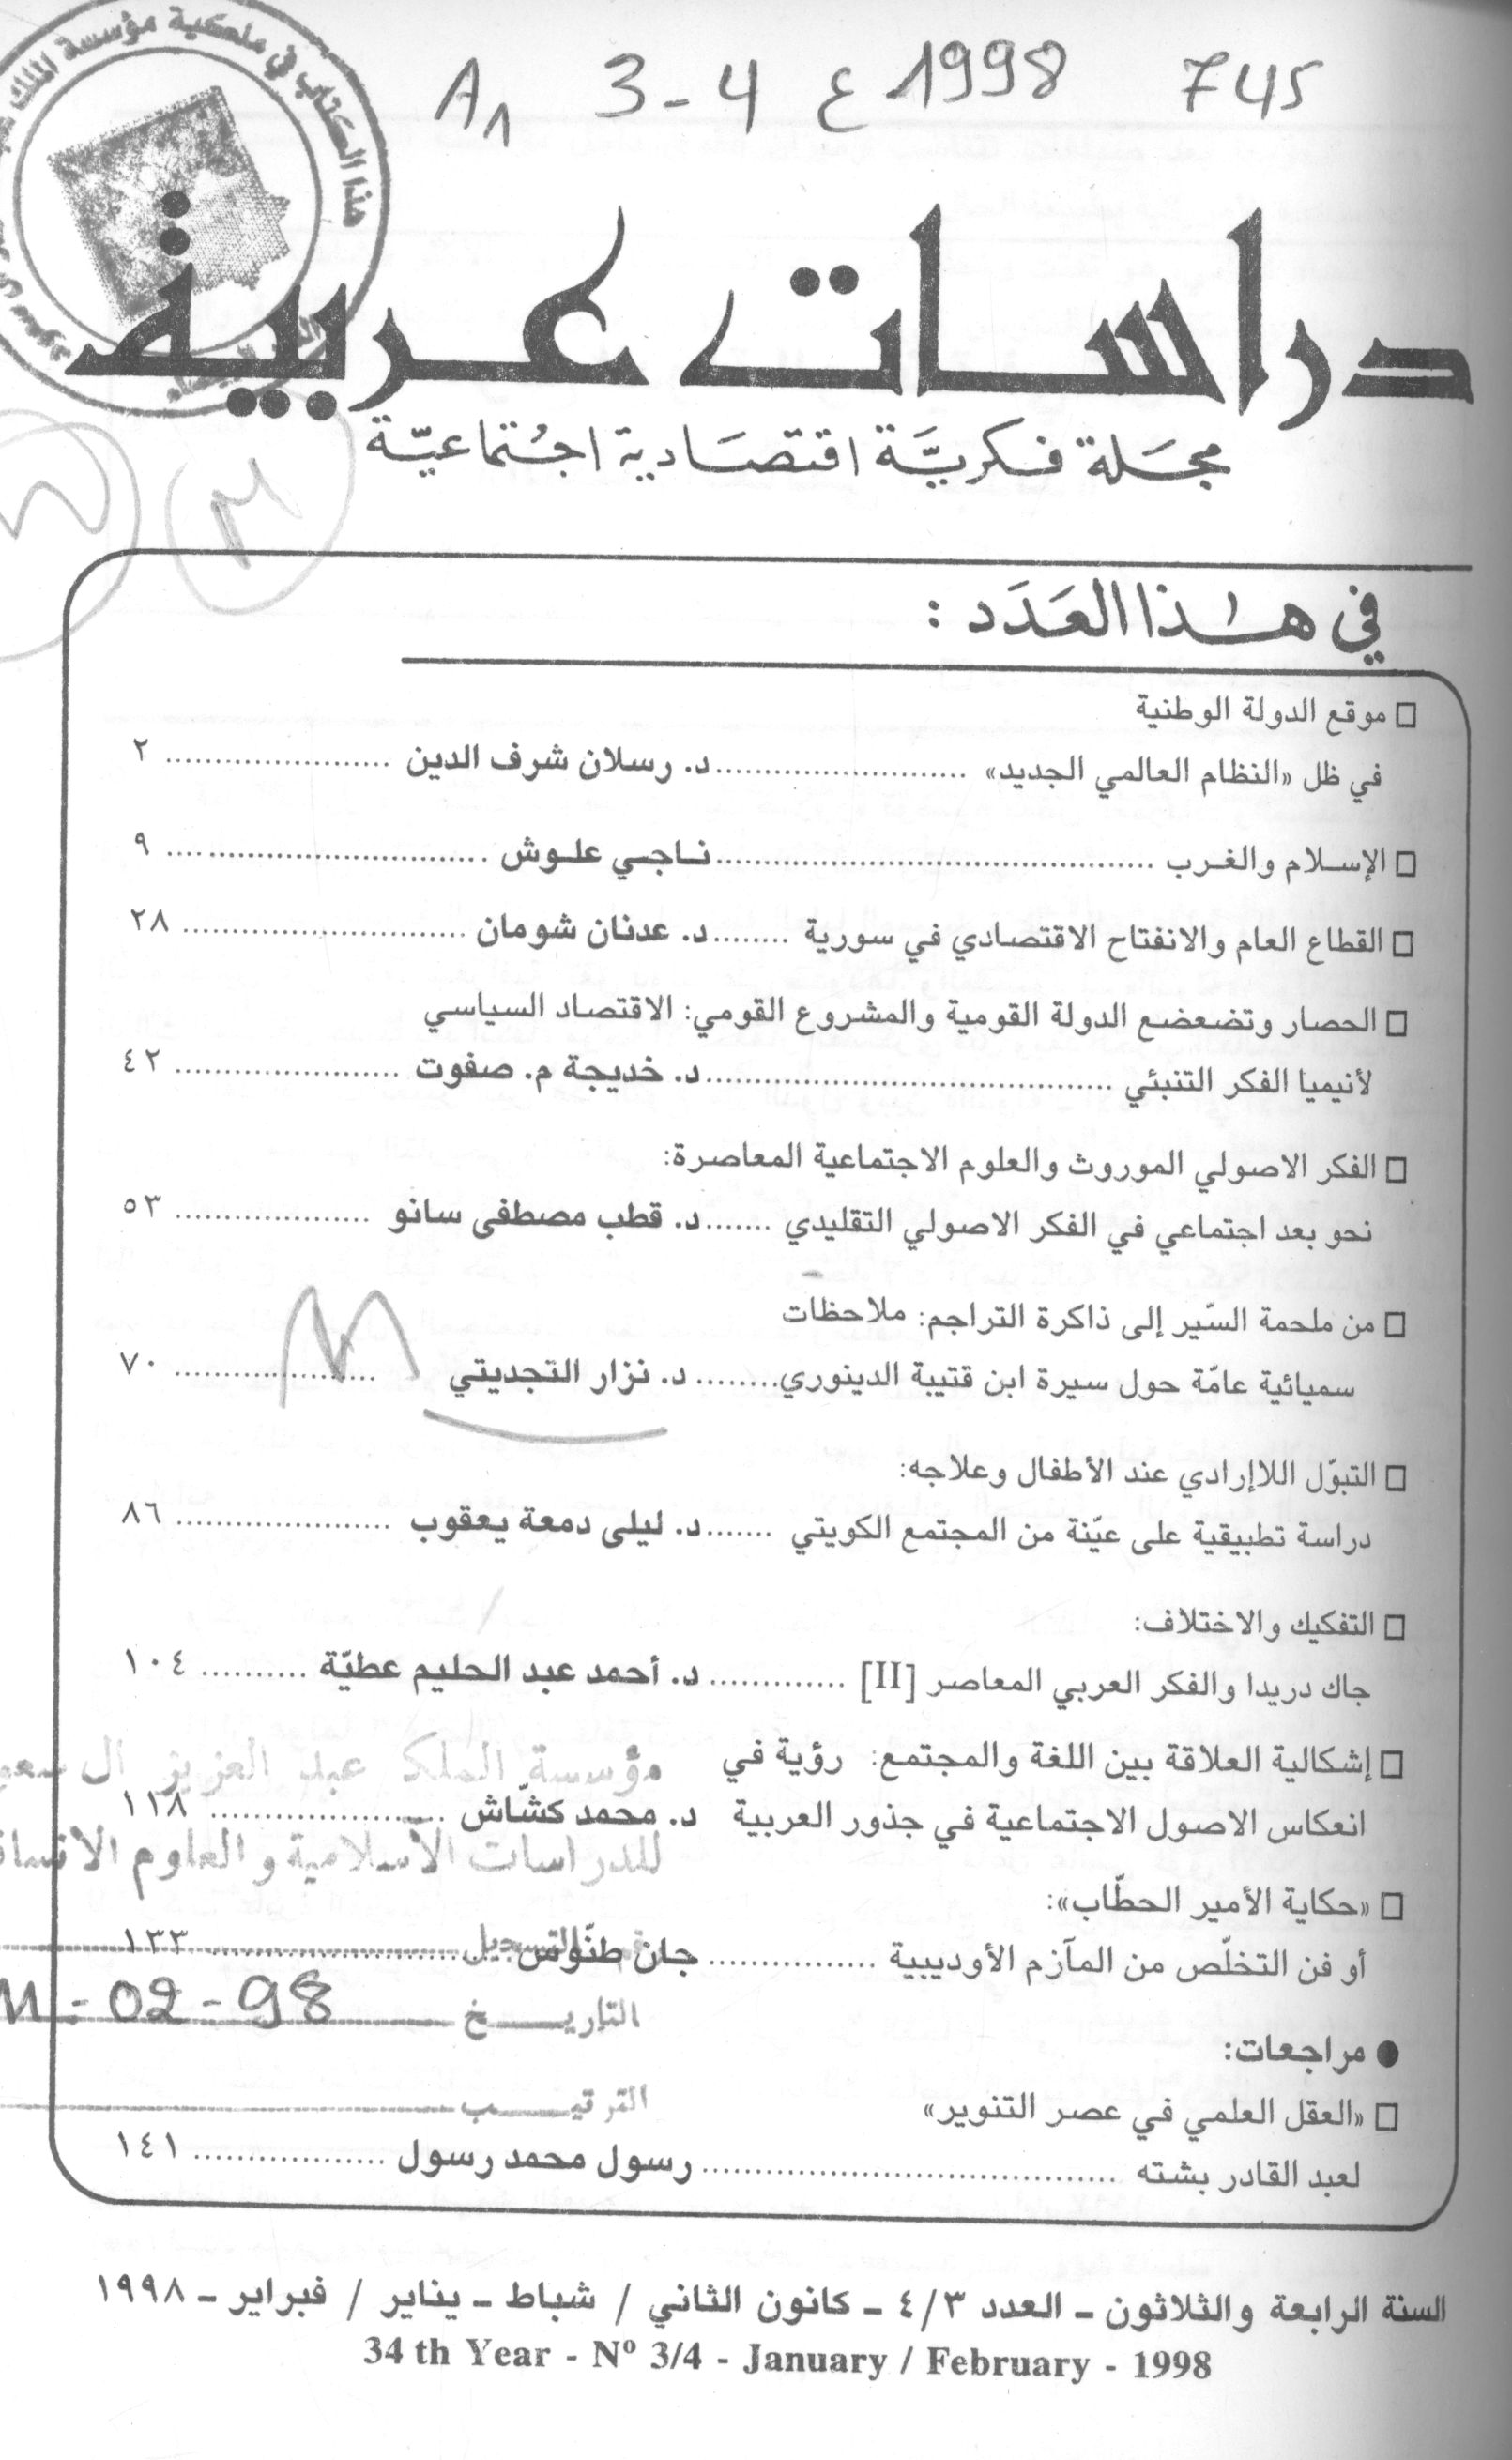 A1 3-4 ع 1998 745
هذا الكتاب في ملكية مؤسسة الملك
دراسات عربية
مجلة فكريَّة اقتصادية اجتماعيّة
في هذا العَدَد :
□ موقع الدولة الوطنية
في ظل «النظام العالمي الجديد» ........................ د. رسلان شرف الدين ........................ ٢
□ الإسلام والغرب ........................ ناجي علوش ........................ ٩
□ القطاع العام والانفتاح الاقتصادي في سورية ........ د. عدنان شومان ........................ ٢٨
□ الحصار وتضعضع الدولة القومية والمشروع القومي: الاقتصاد السياسي
لأنيميا الفكر التنبئي ........................ د. خديجة م. صفوت ........................ ٤٢
□ الفكر الاصولي الموروث والعلوم الاجتماعية المعاصرة:
نحو بعد اجتماعي في الفكر الاصولي التقليدي ....... د. قطب مصطفى سانو .................... ٥٣
□ من ملحمة السّير إلى ذاكرة التراجم: ملاحظات
سميائية عامّة حول سيرة ابن قتيبة الدينوري ........ د. نزار التجديتي .................... ٧٠
□ التبوّل اللاإرادي عند الأطفال وعلاجه:
دراسة تطبيقية على عيّنة من المجتمع الكويتي ....... د. ليلى دمعة يعقوب ...................... ٨٦
□ التفكيك والاختلاف:
جاك دريدا والفكر العربي المعاصر [II] ............. د. أحمد عبد الحليم عطيّة .......... ١٠٤
□ إشكالية العلاقة بين اللغة والمجتمع: رؤية في
مؤسسة الملك عبد العزيز ال سعو
انعكاس الاصول الاجتماعية في جذور العربية د. محمد كشّاش ...................... ١١٨
للدراسات الاسلامية والعلوم الانسا
□ «حكاية الأمير الحطّاب»:
أو فن التخلّص من المآزم الأوديبية ................ جان طنّوس ...................... ١٣٣
التسجيل
التاريخ 02-98
● مراجعات:
الترتيب
□ «العقل العلمي في عصر التنوير»
لعبد القادر بشته ........................ رسول محمد رسول .................. ١٤١
السنة الرابعة والثلاثون ـ العدد ٤/٣ ـ كانون الثاني / شباط ـ يناير / فبراير ـ ١٩٩٨
34 th Year - Nº 3/4 - January / February - 1998